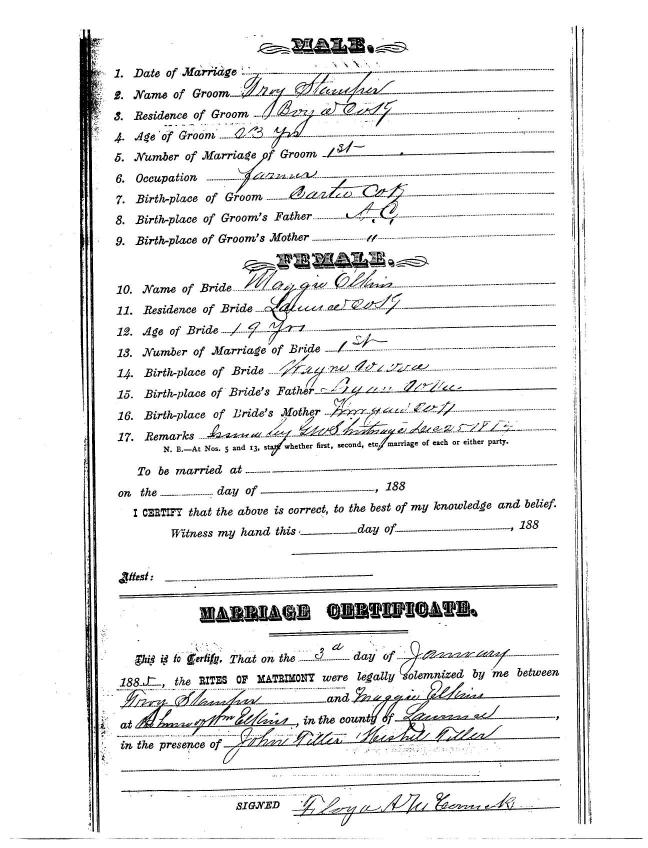 MALE.
1. Date of Marriage
2. Name of Groom Troy Stamper
3. Residence of Groom Boyd Co Ky
4. Age of Groom 23 Yrs
5. Number of Marriage of Groom 1st
6. Occupation farmer
7. Birth-place of Groom Carter Co K
8. Birth-place of Groom's Father
9. Birth-place of Groom's Mother "
FEMALE.
10. Name of Bride Maggie Elkins
11. Residence of Bride Lawrence Co Ky
12. Age of Bride 19 Yrs
13. Number of Marriage of Bride 1st
14. Birth-place of Bride Wayne
15. Birth-place of Bride's Father
16. Birth-place of Bride's Mother
17. Remarks Issued by Dec 25 188
N. B.—At Nos. 5 and 13, state whether first, second, etc., marriage of each or either party.
To be married at
on the day of , 188
I CERTIFY that the above is correct, to the best of my knowledge and belief.
Witness my hand this day of , 188
Attest:
MARRIAGE CERTIFICATE.
This is to Certify, That on the 3d day of January
1885, the RITES OF MATRIMONY were legally solemnized by me between
Troy Stamper and Maggie Elkins
at house of Wm Elkins, in the county of Lawrence,
in the presence of John Tiller
SIGNED